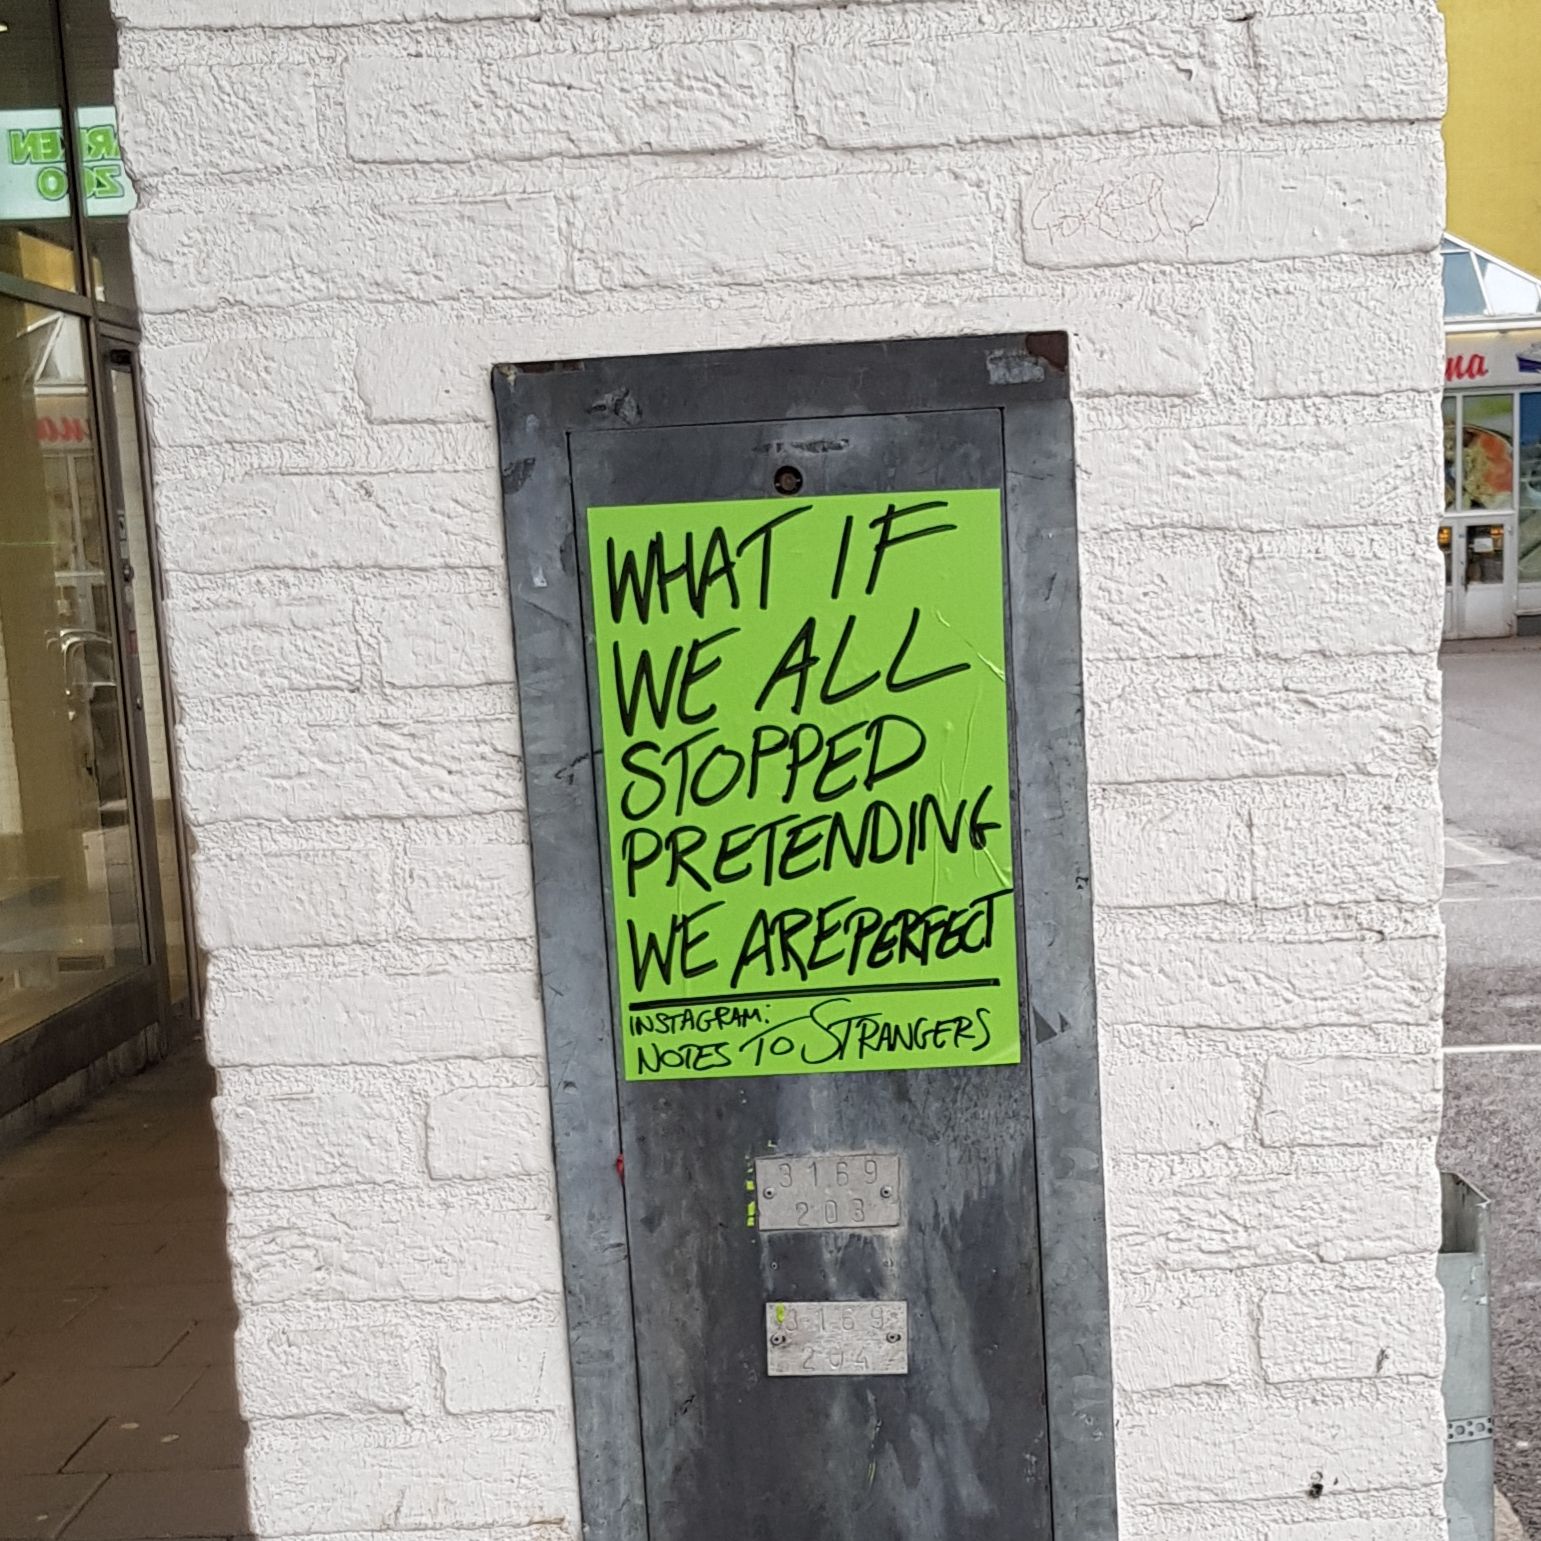 WHAT IF
WE ALL
STOPPED
PRETENDING
WE ARE PERFECT
INSTAGRAM:
NOTES TO STRANGERS
3169
203
3169
204